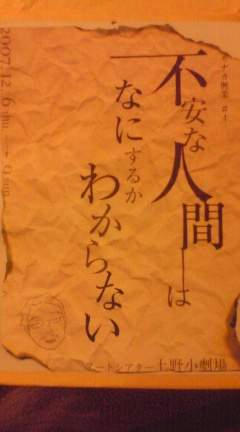 不安な人間は
なにするか
わからない
2007.12.6 thu → 9 sun
アートシアター上野小劇場